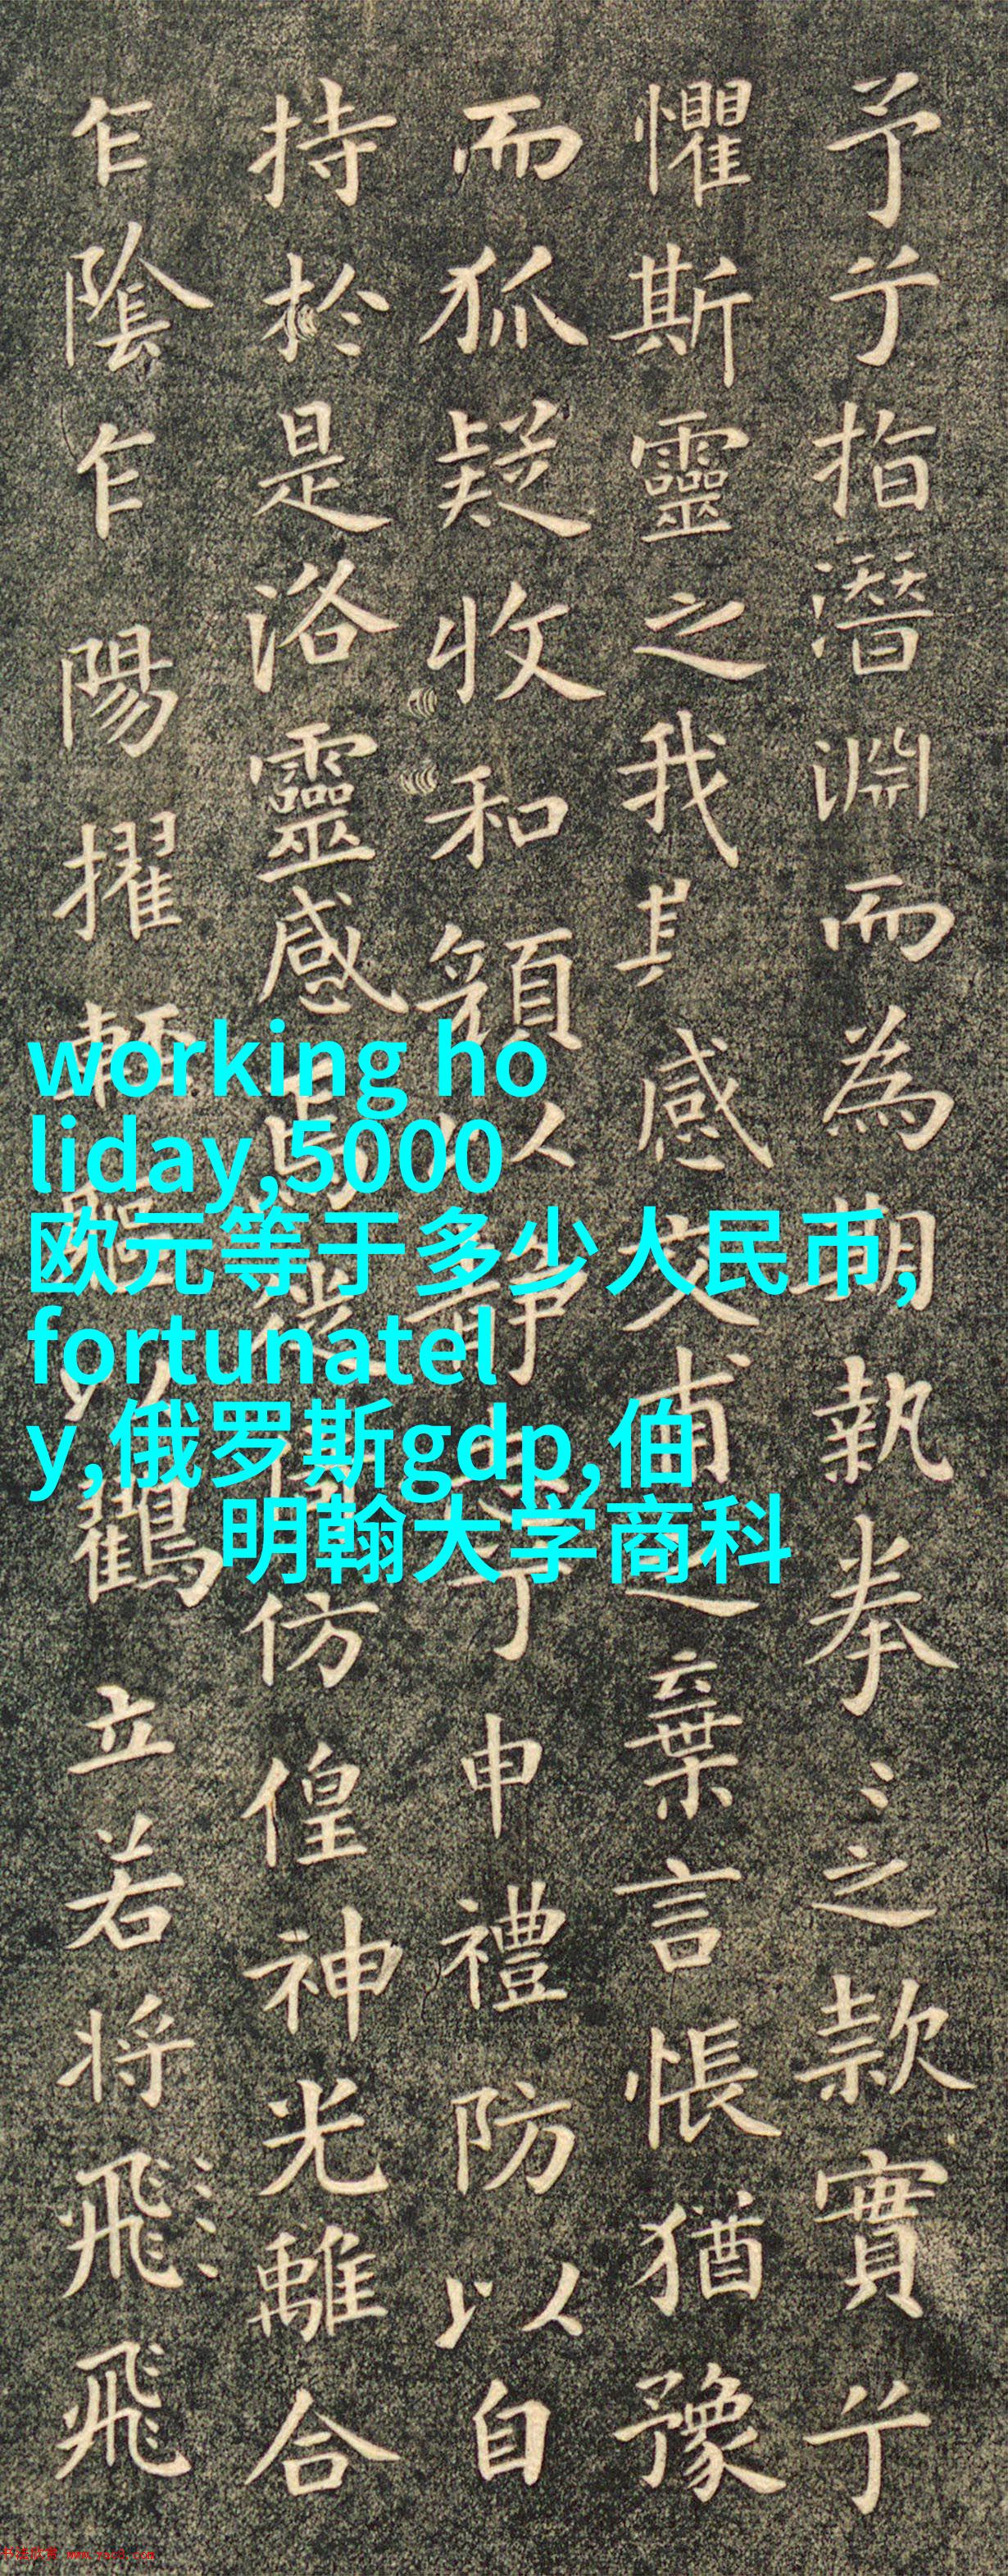 予兮指潛淵而為期執拳〻之款實兮
懼斯靈之我其感交甫之棄言悵猶豫
而狐疑收和顏以靜志予申禮防以自
持於是洛靈感焉徙倚仿偟神光離合
乍陰乍陽擢輕軀以鶴立若將飛飛
working ho
liday,5000
欧元等于多少人民币,
fortunatel
y,俄罗斯gdp,伯
明翰大学商科